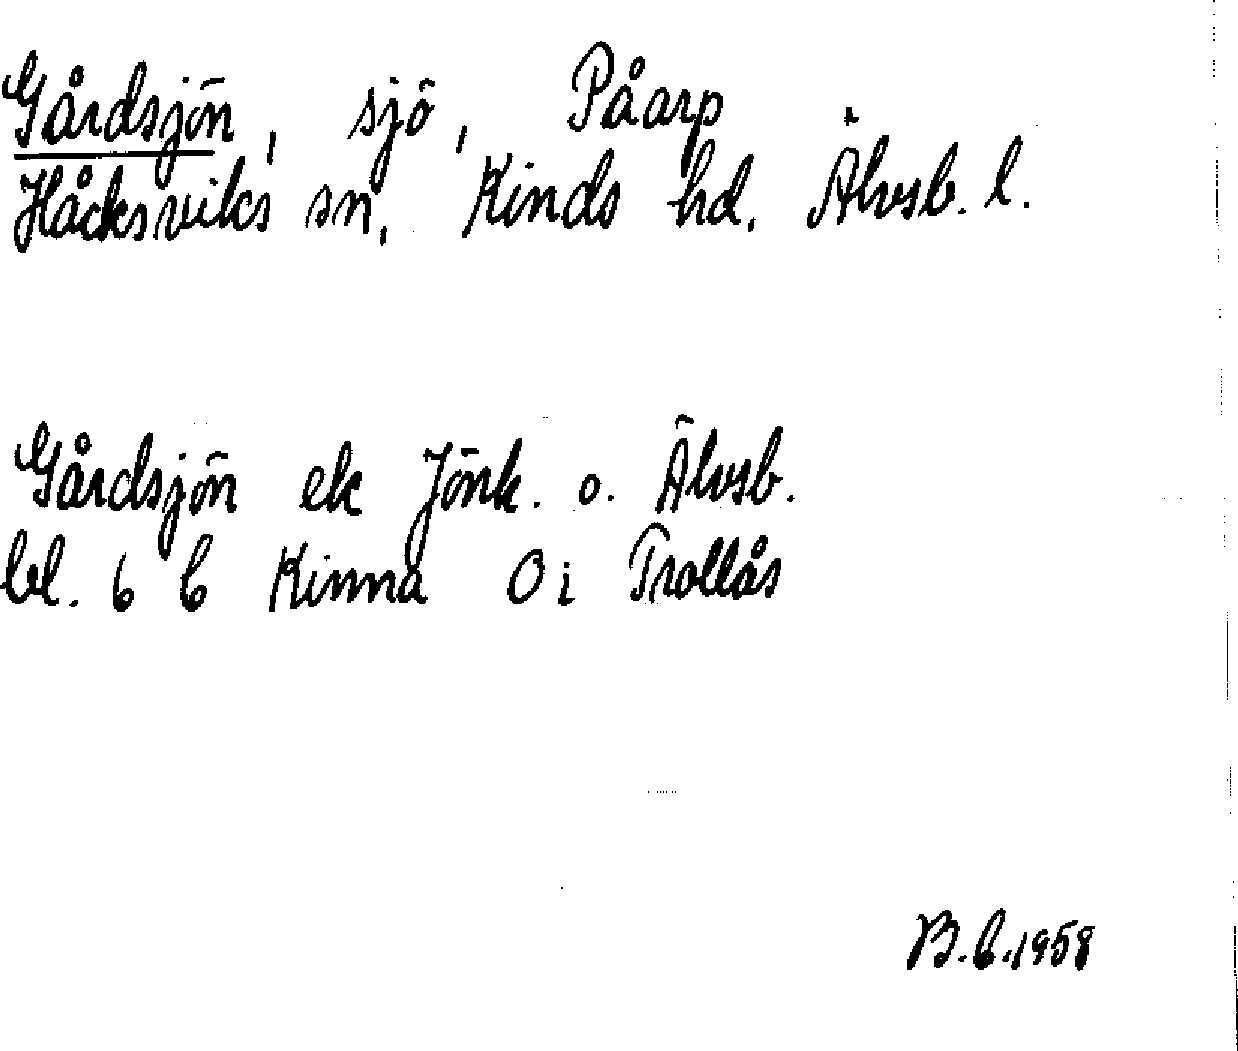 Gårdsjön, sjö, Påarp
Håcksviks sn, Kinds hd, Älvsb. l.
Gårdsjön ek Jönk. o. Älvsb.
bl. 6 C Kinna Ö i Trollås
B.C.1958